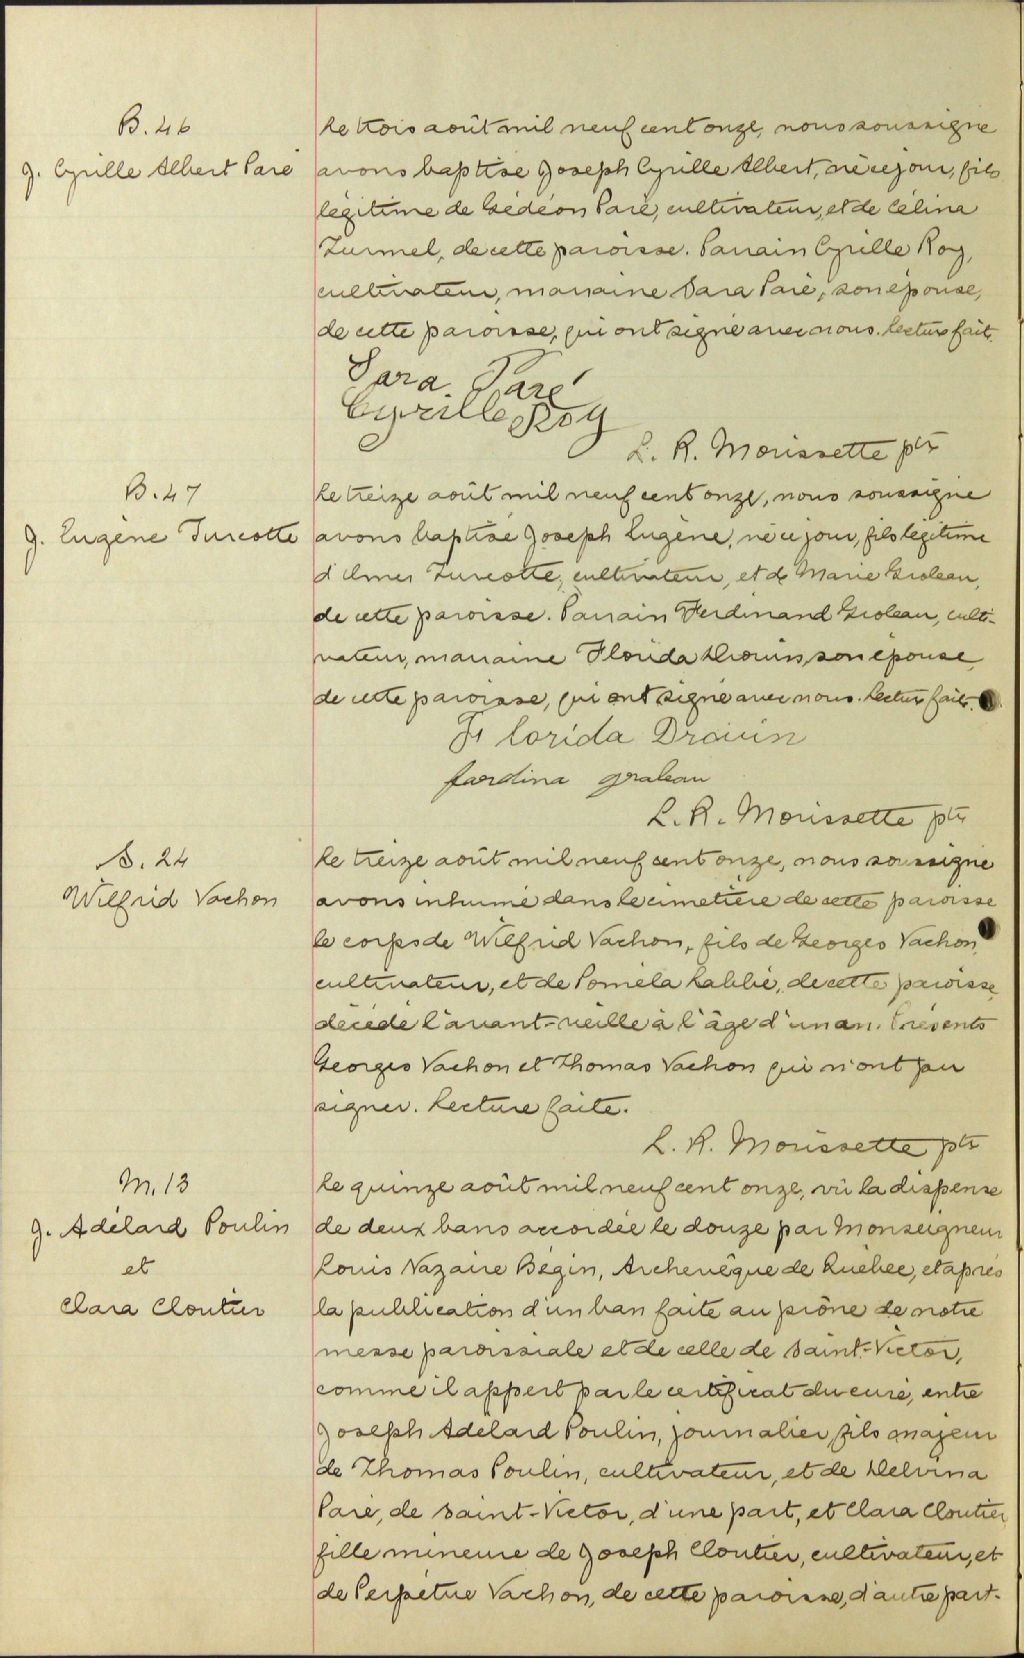 B. 46
J. Cyrille Albert Paré
Le trois août mil neuf cent onze, nous soussigné
avons baptisé Joseph Cyrille Albert, né ce jour, fils
légitime de Gédéon Paré, cultivateur, et de Célina
Turmel, de cette paroisse. Parrain Cyrille Roy,
cultivateur, marraine Sara Paré, son épouse,
de cette paroisse, qui ont signé avec nous. Lecture faite.
Sara Paré
Cyrille Roy
L. R. Morissette ptre
B. 47
J. Eugène Turcotte
Le treize août mil neuf cent onze, nous soussigné
avons baptisé Joseph Eugène, né ce jour, fils légitime
d'Elmer Turcotte, cultivateur, et de Marie Groleau,
de cette paroisse. Parrain Ferdinand Groleau, culti-
vateur, marraine Florida Drouin, son épouse,
de cette paroisse, qui ont signé avec nous. Lecture faite.
Florida Drouin
fardina graleau
L. R. Morissette ptre
S. 24
Wilfrid Vachon
Le treize août mil neuf cent onze, nous soussigné
avons inhumé dans le cimetière de cette paroisse
le corps de Wilfrid Vachon, fils de Georges Vachon,
cultivateur, et de Poméla Labbé, de cette paroisse,
décédé l'avant-veille à l'âge d'un an. Présents
Georges Vachon et Thomas Vachon qui n'ont pu
signer. Lecture faite.
L. R. Morissette ptre
M. 13
J. Adélard Poulin
et
Clara Cloutier
Le quinze août mil neuf cent onze, vû la dispense
de deux bans accordée le douze par Monseigneur
Louis Nazaire Bégin, Archevêque de Québec, et après
la publication d'un ban faite au prône de notre
messe paroissiale et de celle de Saint-Victor,
comme il appert par le certificat du curé, entre
Joseph Adélard Poulin, journalier, fils majeur
de Thomas Poulin, cultivateur, et de Delvina
Paré, de Saint-Victor, d'une part, et Clara Cloutier,
fille mineure de Joseph Cloutier, cultivateur, et
de Perpétue Vachon, de cette paroisse, d'autre part.